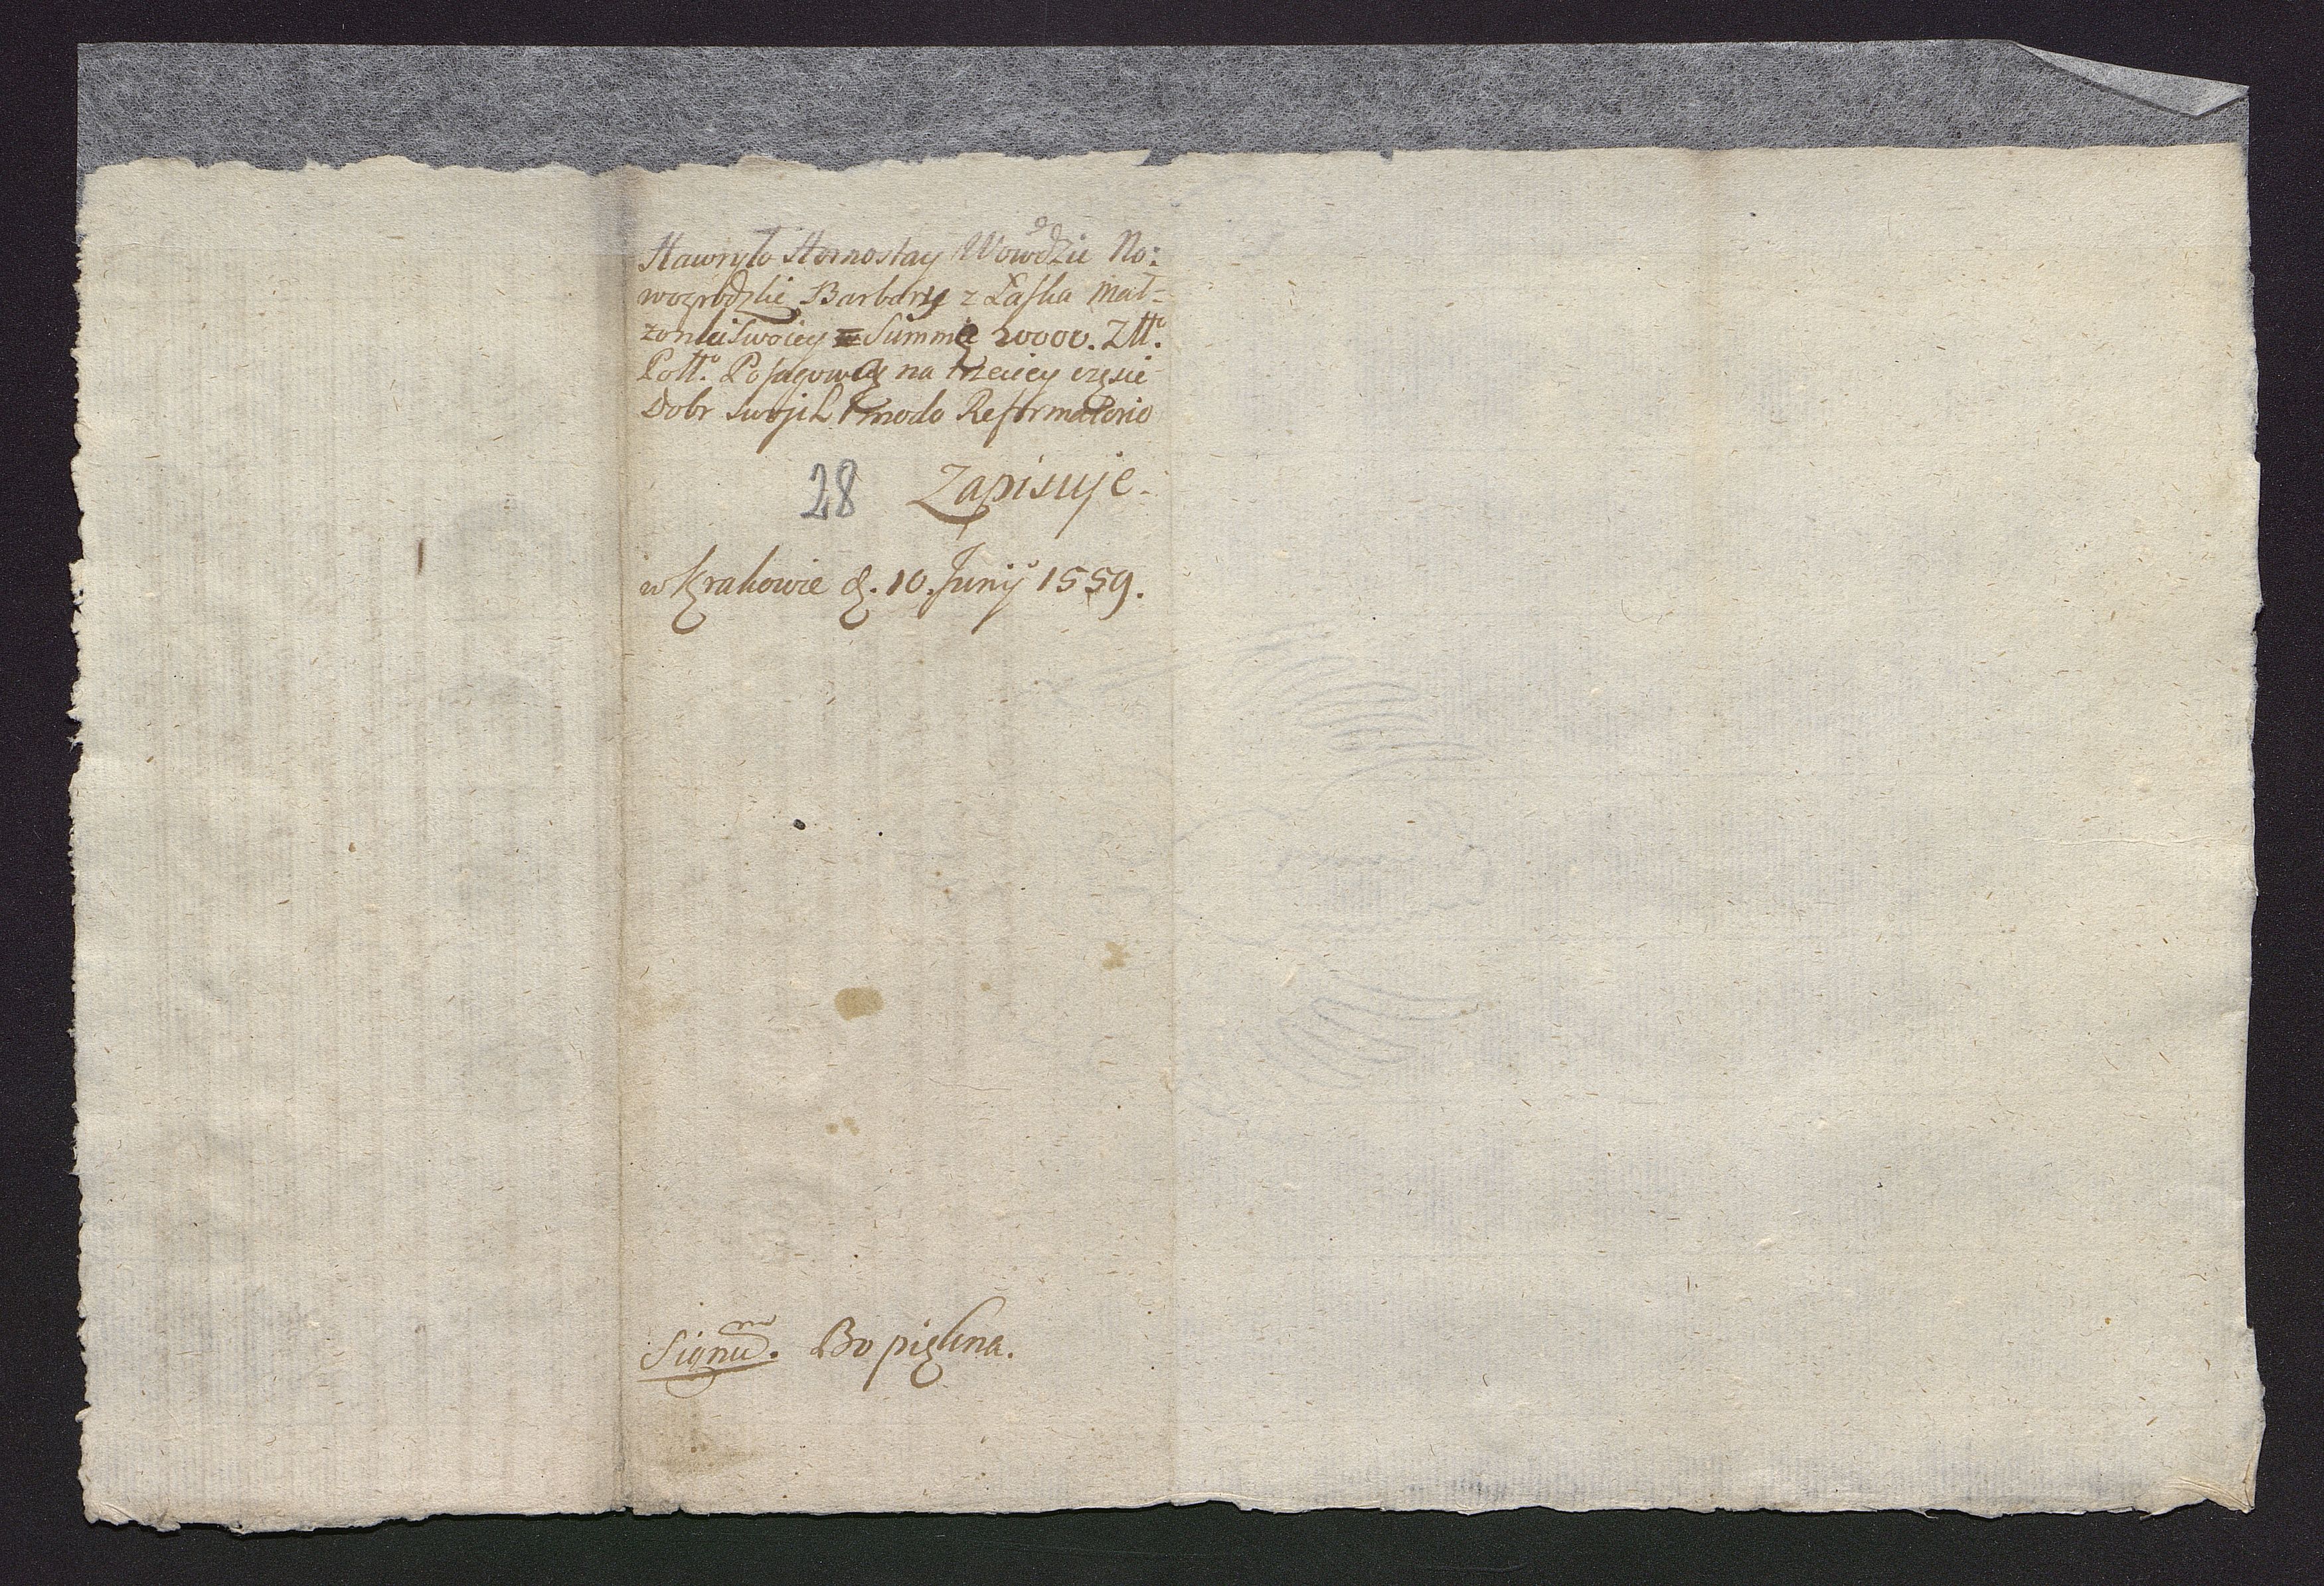 Hawryło Hornostay Wowdzic No:
wogródzkie Barbarze z Łaska Mał-
żonce swoiey Summę 20000. Złł.
Poll. Posagową na trzeciey częsci
Dobr swojich modo Reformatorio
28 Zapisuje.
w Krakowie d. 10. Junij 1559.
Signu͞m.